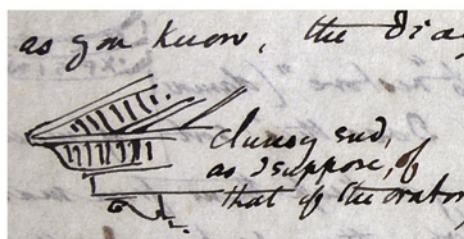 as you know, the diag
clumsy sud,
as I suppose, of
that of the orator